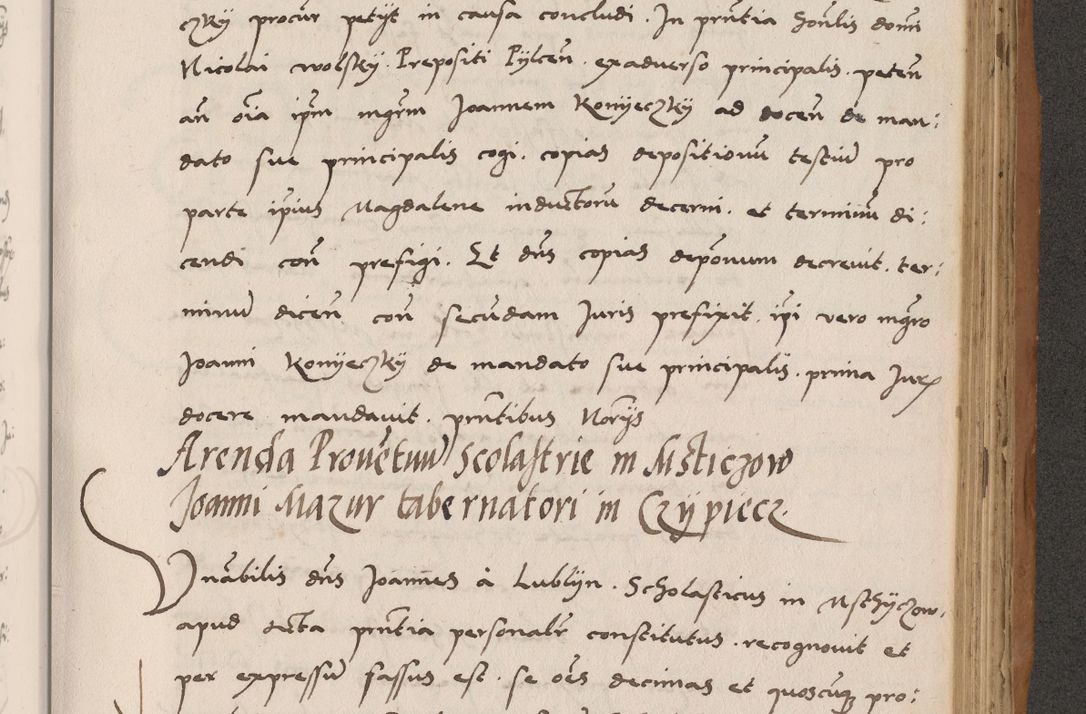 czky procur petyt in causa concludi. In prntia honlis domi
Nicolai wolsky. Prepositi Pylcen. exadverso principalis. peten
an oia ipm mgrm Joannem Konyeczky ad docen de man:
dato sue principalis cogi. copias depositionu testiu pro
parte ipius Magdalene inductoru decerni. et terminu di:
cendi con prefigi. Et dns copias deponum decrevit. ter:
minu dicen con secundam Juris prefixit. ipi vero mgro
Joanni Konyeczky de mandato sue principalis. prima Jur
docere mandavit. prntibus Norys
Arenda Proventuu Scolastrie in Msticzow
Joanni Mazur tabernatori in Czypiecz
Vnabilis dns Joannes a Lublyn. Scholasticus in Msthyczow.
apud acta prntia personalr constitutus. recognovit et
per expressu fassus est. se oes decimas et quoscuq pro: